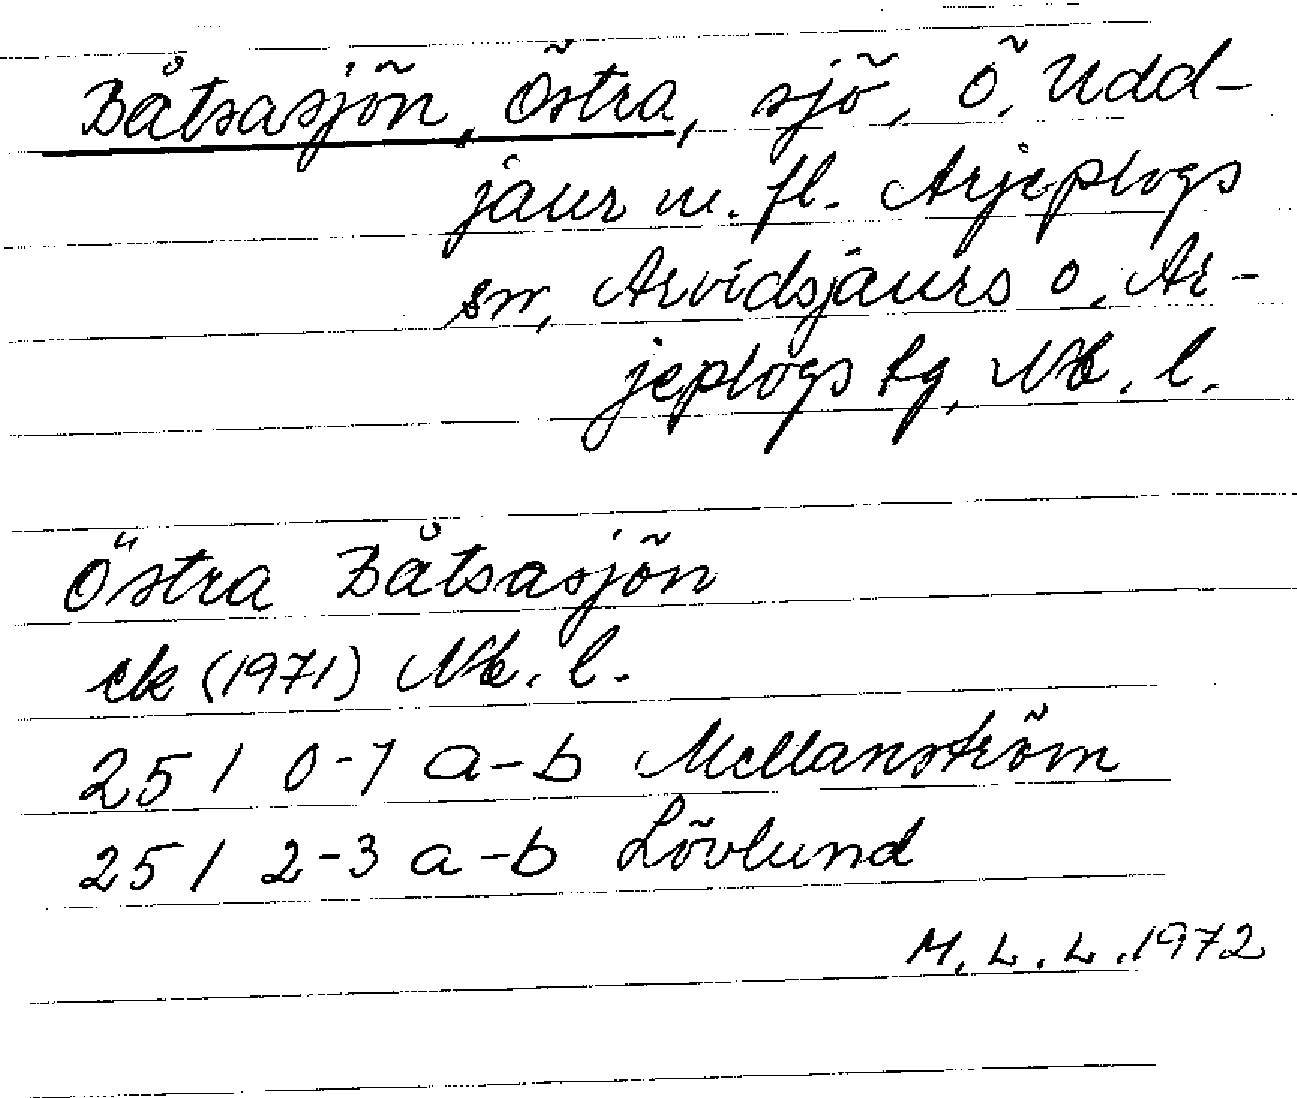 Båtsasjön, Östra, sjö, ö. Udd-
jaur m. fl. Arjeplogs
sn, Arvidsjaurs o. Ar-
jeplogs tg, Nb. l.
Östra Båtsasjön
ek (1971) Nb. l.
25 I 0-1 a-b Mellanström
25 I 2-3 a-b Lövlund
M. L. L. 1972